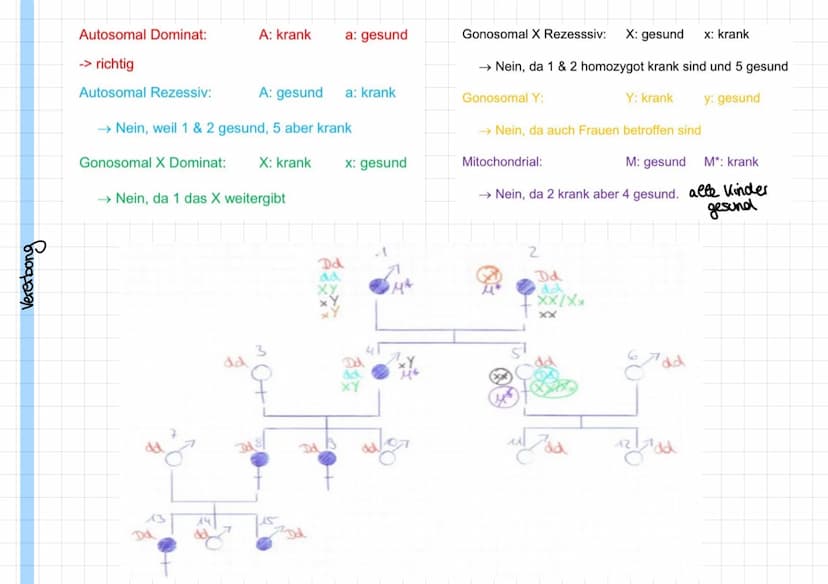 Autosomal Dominat: A: krank a: gesund
-> richtig
Autosomal Rezessiv: A: gesund a: krank
→ Nein, weil 1 & 2 gesund, 5 aber krank
Gonosomal X Dominat: X: krank x: gesund
→ Nein, da 1 das X weitergibt
Gonosomal X Rezesssiv: X: gesund x: krank
→ Nein, da 1 & 2 homozygot krank sind und 5 gesund
Gonosomal Y: Y: krank y: gesund
→ Nein, da auch Frauen betroffen sind
Mitochondrial: M: gesund M*: krank
→ Nein, da 2 krank aber 4 gesund. alle Kinder
gesund
Vererbung
1 2
Dd M* Dd
dd M* dd
XY XX/Xx
xY xx
xY
3 4 5 6
dd Dd xY dd dd
dd M* xx dd
XY M*
7 8 9 10 11 12
dd Dd Dd dd dd dd
13 14 15
Dd dd Dd